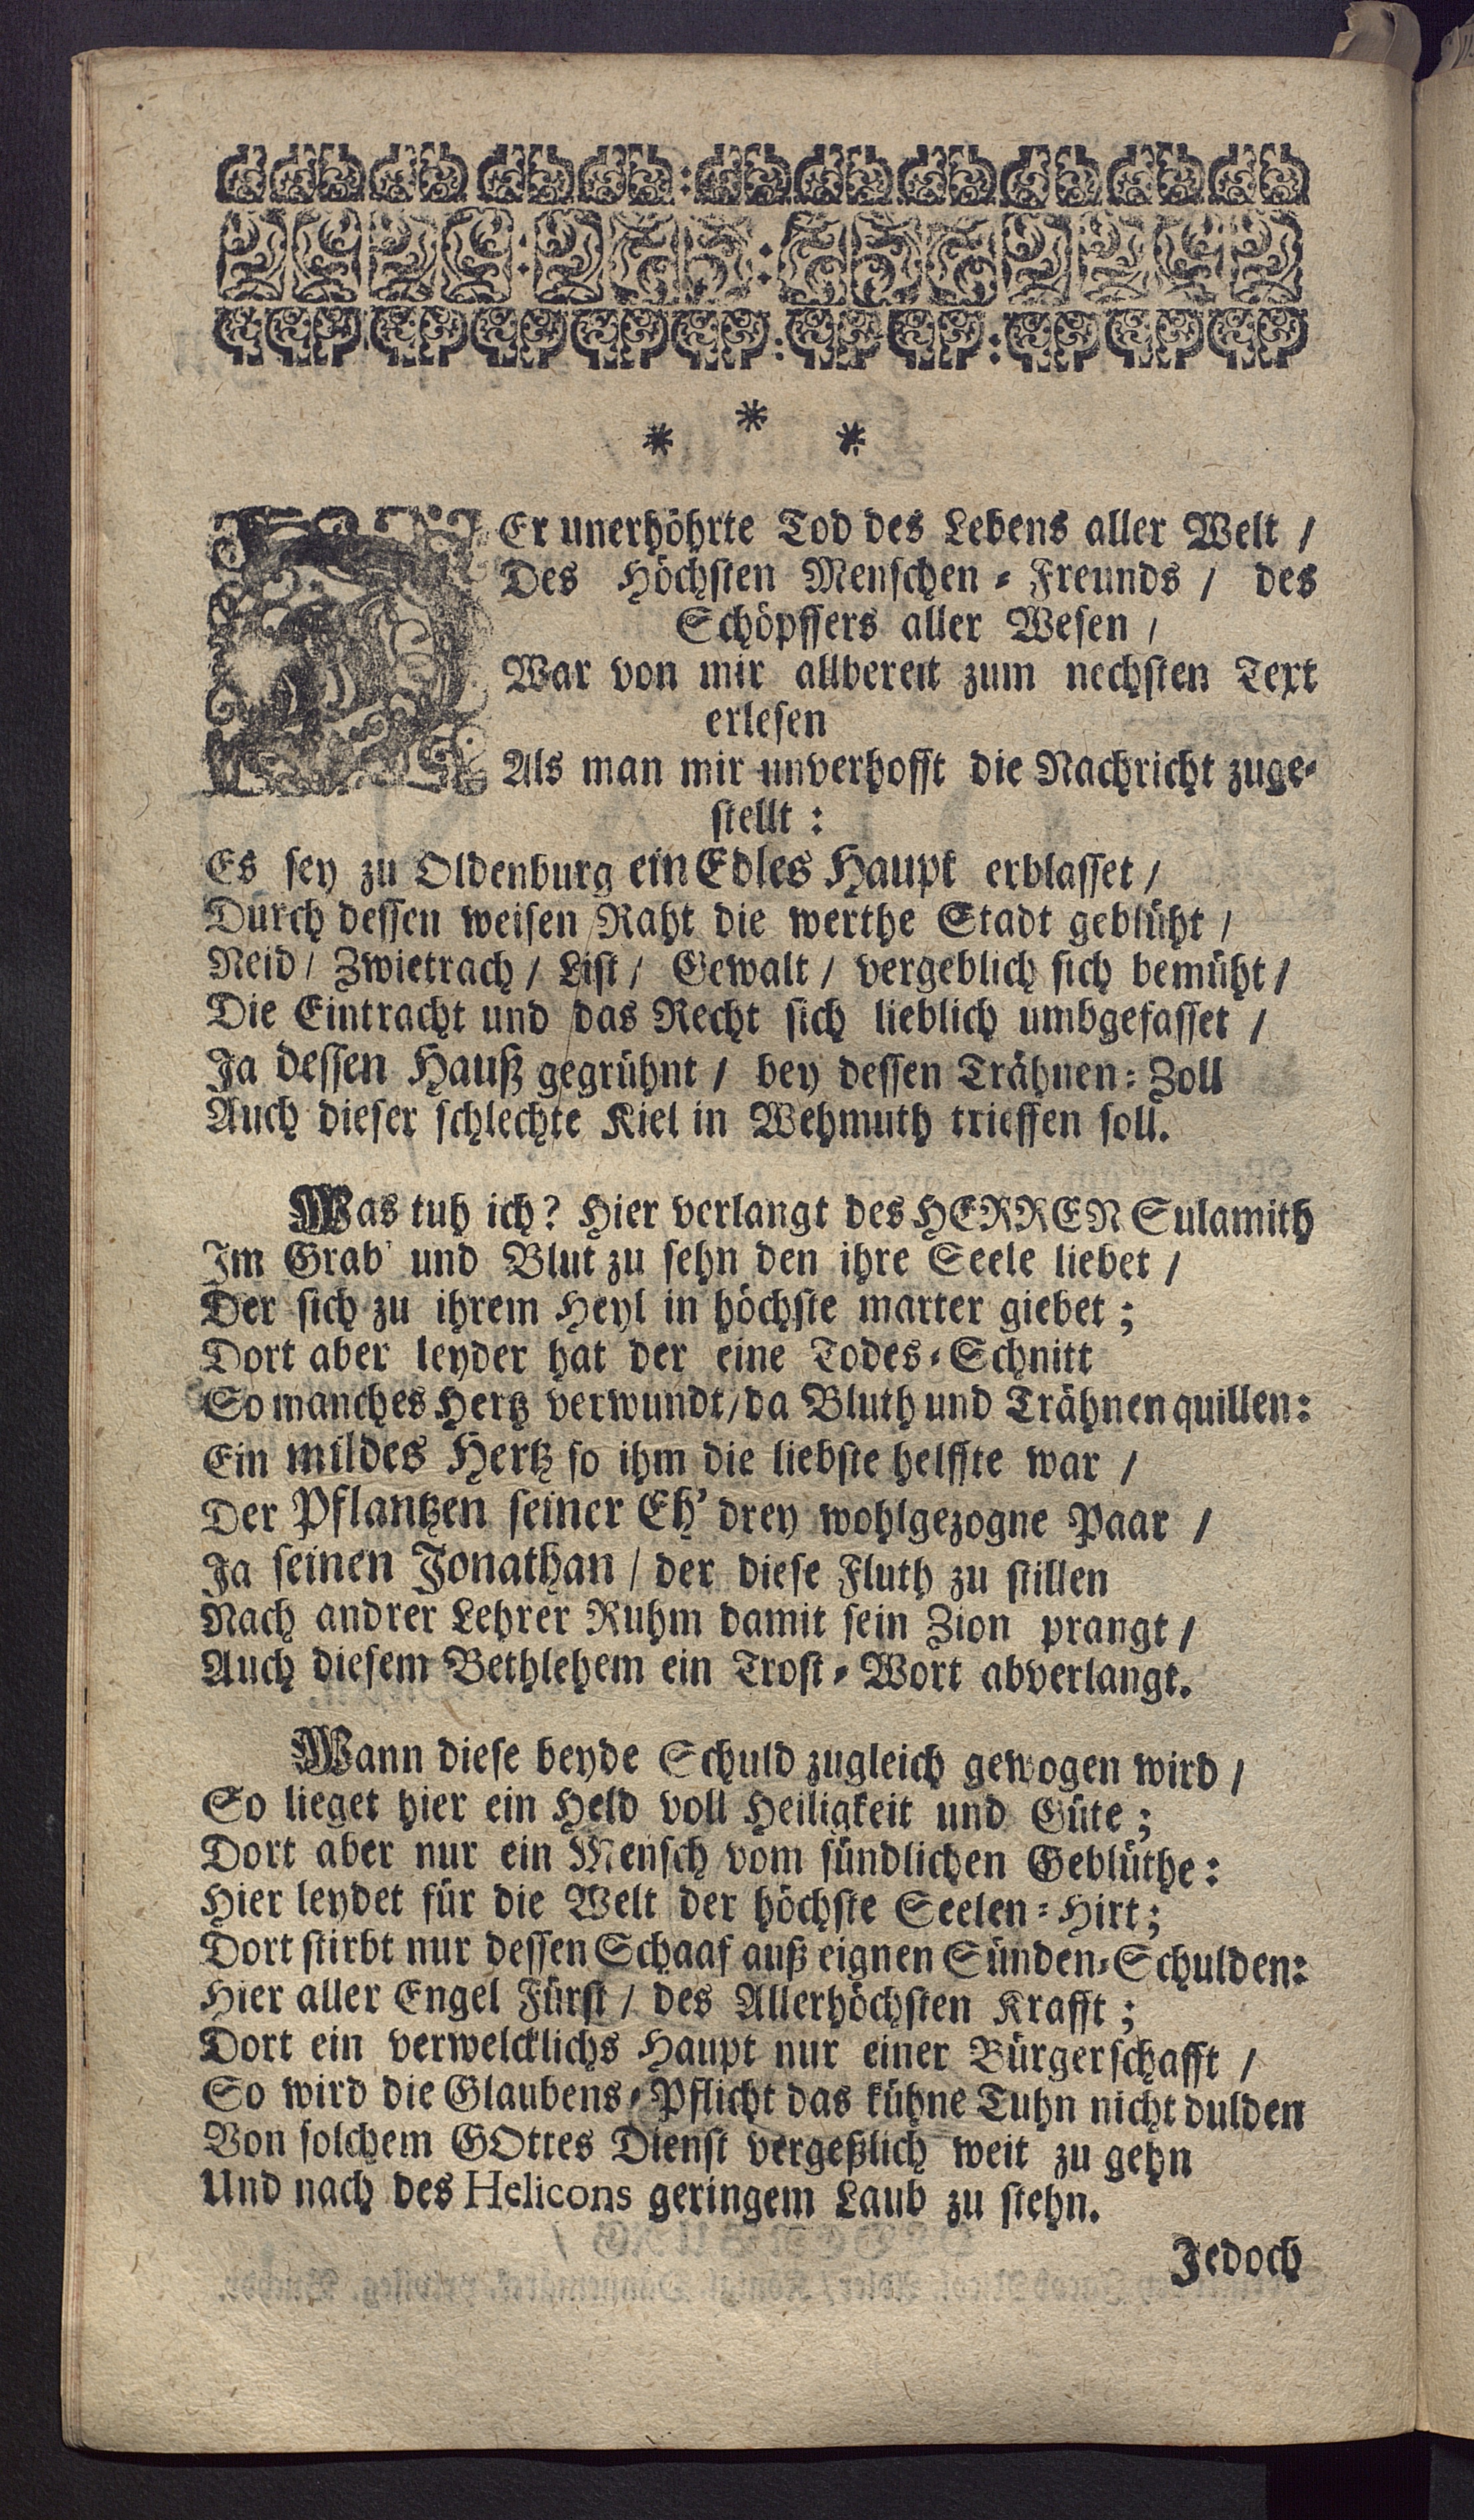 * * *
DEr unerhöhrte Tod des Lebens aller Welt /
Des Höchsten Menschen-Freunds / des
Schöpffers aller Wesen /
War von mir allbereit zum nechsten Text
erlesen
Als man mir unverhofft die Nachricht zuge-
stellt :
Es sey zu Oldenburg ein Edles Haupt erblasset /
Durch dessen weisen Raht die werthe Stadt geblüht /
Neid / Zwietrach / List / Gewalt / vergeblich sich bemüht /
Die Eintracht und das Recht sich lieblich umbgefasset /
Ja dessen Hauß gegrühnt / bey dessen Trähnen-Zoll
Auch dieser schlechte Kiel in Wehmuth trieffen soll.
Was tuh ich? Hier verlangt des HERREN Sulamith
Im Grab' und Blut zu sehn den ihre Seele liebet /
Der sich zu ihrem Heyl in höchste marter giebet ;
Dort aber leyder hat der eine Todes-Schnitt
So manches Hertz verwundt / da Bluth und Trähnen quillen:
Ein mildes Hertz so ihm die liebste helffte war /
Der Pflantzen seiner Eh' drey wohlgezogne Paar /
Ja seinen Jonathan / der diese Fluth zu stillen
Nach andrer Lehrer Ruhm damit sein Zion prangt /
Auch diesem Bethlehem ein Trost-Wort abverlangt.
Wann diese beyde Schuld zugleich gewogen wird /
So lieget hier ein Held voll Heiligkeit und Güte ;
Dort aber nur ein Mensch vom sündlichen Geblüthe :
Hier leydet für die Welt der höchste Seelen-Hirt ;
Dort stirbt nur dessen Schaaf auß eignen Sünden-Schulden:
Hier aller Engel Fürst / des Allerhöchsten Krafft ;
Dort ein verwelcklichs Haupt nur einer Bürgerschafft /
So wird die Glaubens-Pflicht das kühne Tuhn nicht dulden
Von solchem GOttes Dienst vergeßlich weit zu gehn
Und nach des Helicons geringem Laub zu stehn.
Jedoch